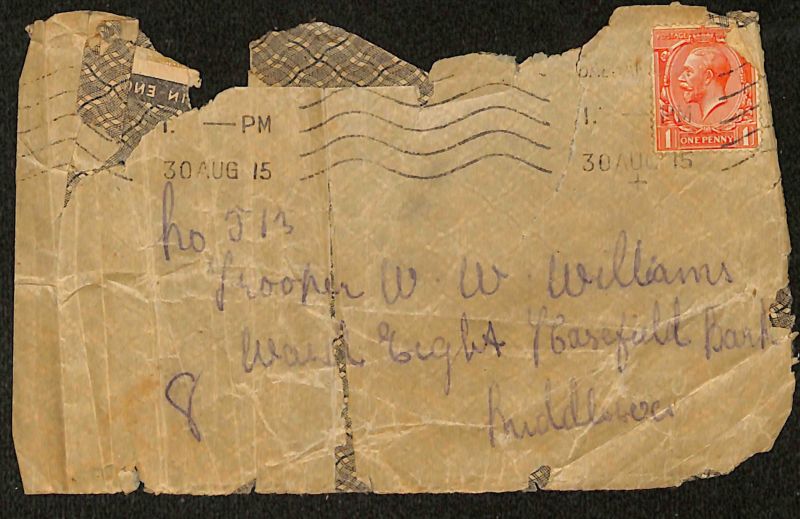 IN ENG
1. — PM
30 AUG 15
1. — PM
30 AUG 15
POSTAGE
1 ONE PENNY 1
no 513
Trooper W. W. Williams
Ward Eight Harefield Park
8